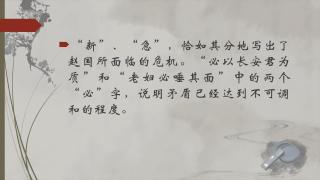 “新”、“急”，恰如其分地写出了
赵国所面临的危机。“必以长安君为
质”和“老妇必唾其面”中的两个
“必”字，说明矛盾已经达到不可调
和的程度。